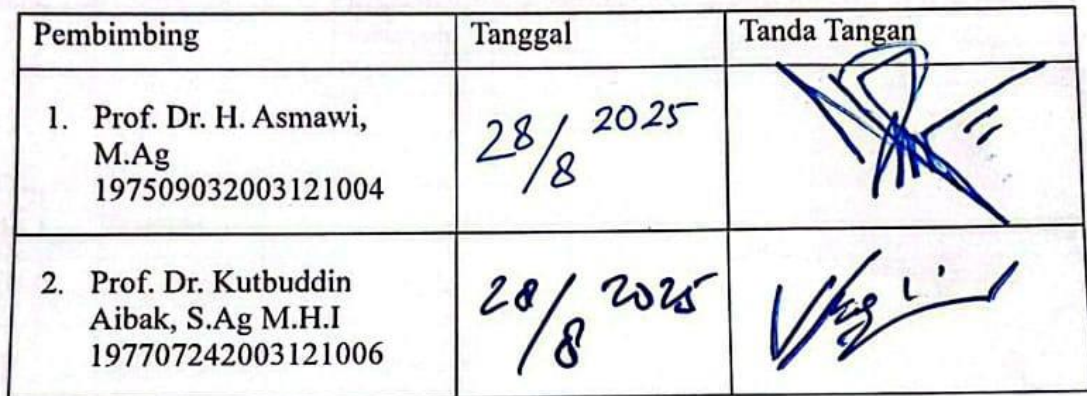 Pembimbing Tanggal Tanda Tangan
1. Prof. Dr. H. Asmawi,
M.Ag
197509032003121004
28/8 2025
2. Prof. Dr. Kutbuddin
Aibak, S.Ag M.H.I
197707242003121006
28/8 2025